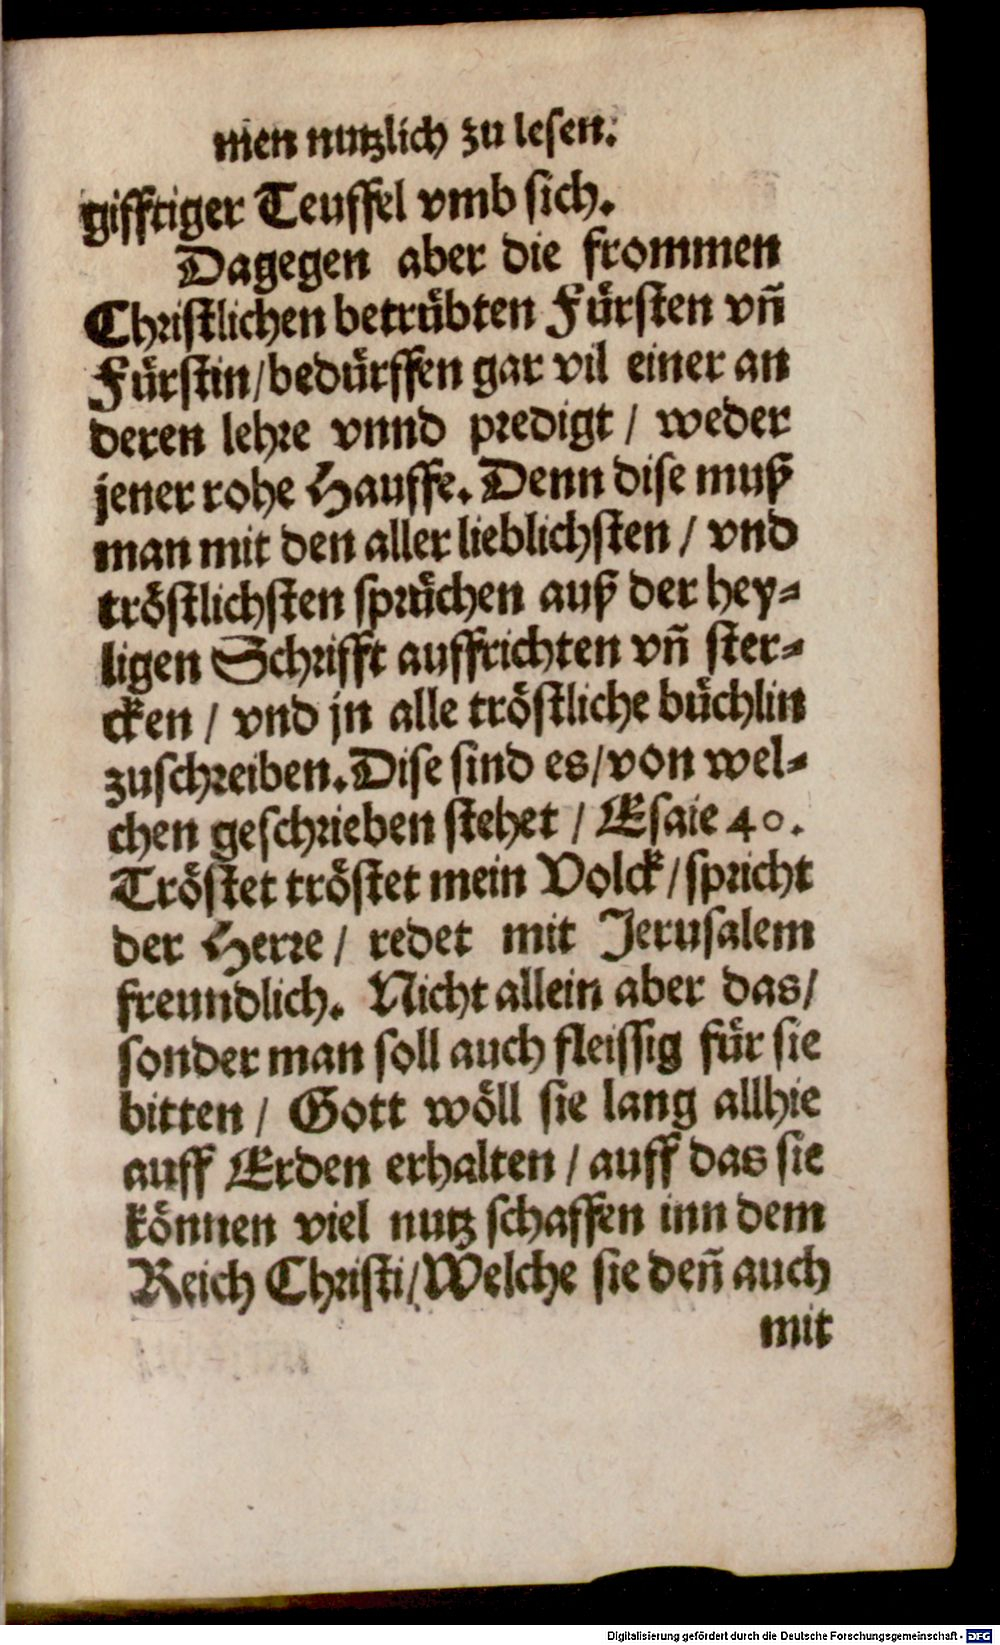 men nutzlich zu lesen.
gifftiger Teuffel vmb sich.
Dagegen aber die frommen
Christlichen betrübten Fürsten vñ
Fürstin/bedürffen gar vil einer an
deren lehre vnnd predigt / weder
jener rohe Hauffe. Denn dise muß
man mit den aller lieblichsten / vnd
tröstlichsten sprüchen auß der hey-
ligen Schrifft auffrichten vñ ster-
cken / vnd jn alle tröstliche büchlin
zuschreiben. Dise sind es/von wel-
chen geschrieben stehet / Esaie 40.
Tröstet tröstet mein Volck/spricht
der Herre / redet mit Jerusalem
freundlich. Nicht allein aber das/
sonder man soll auch fleissig für sie
bitten / Gott wöll sie lang allhie
auff Erden erhalten / auff das sie
können viel nutz schaffen inn dem
Reich Christi/Welche sie deñ auch
mit
Digitalisierung gefördert durch die Deutsche Forschungsgemeinschaft - DFG